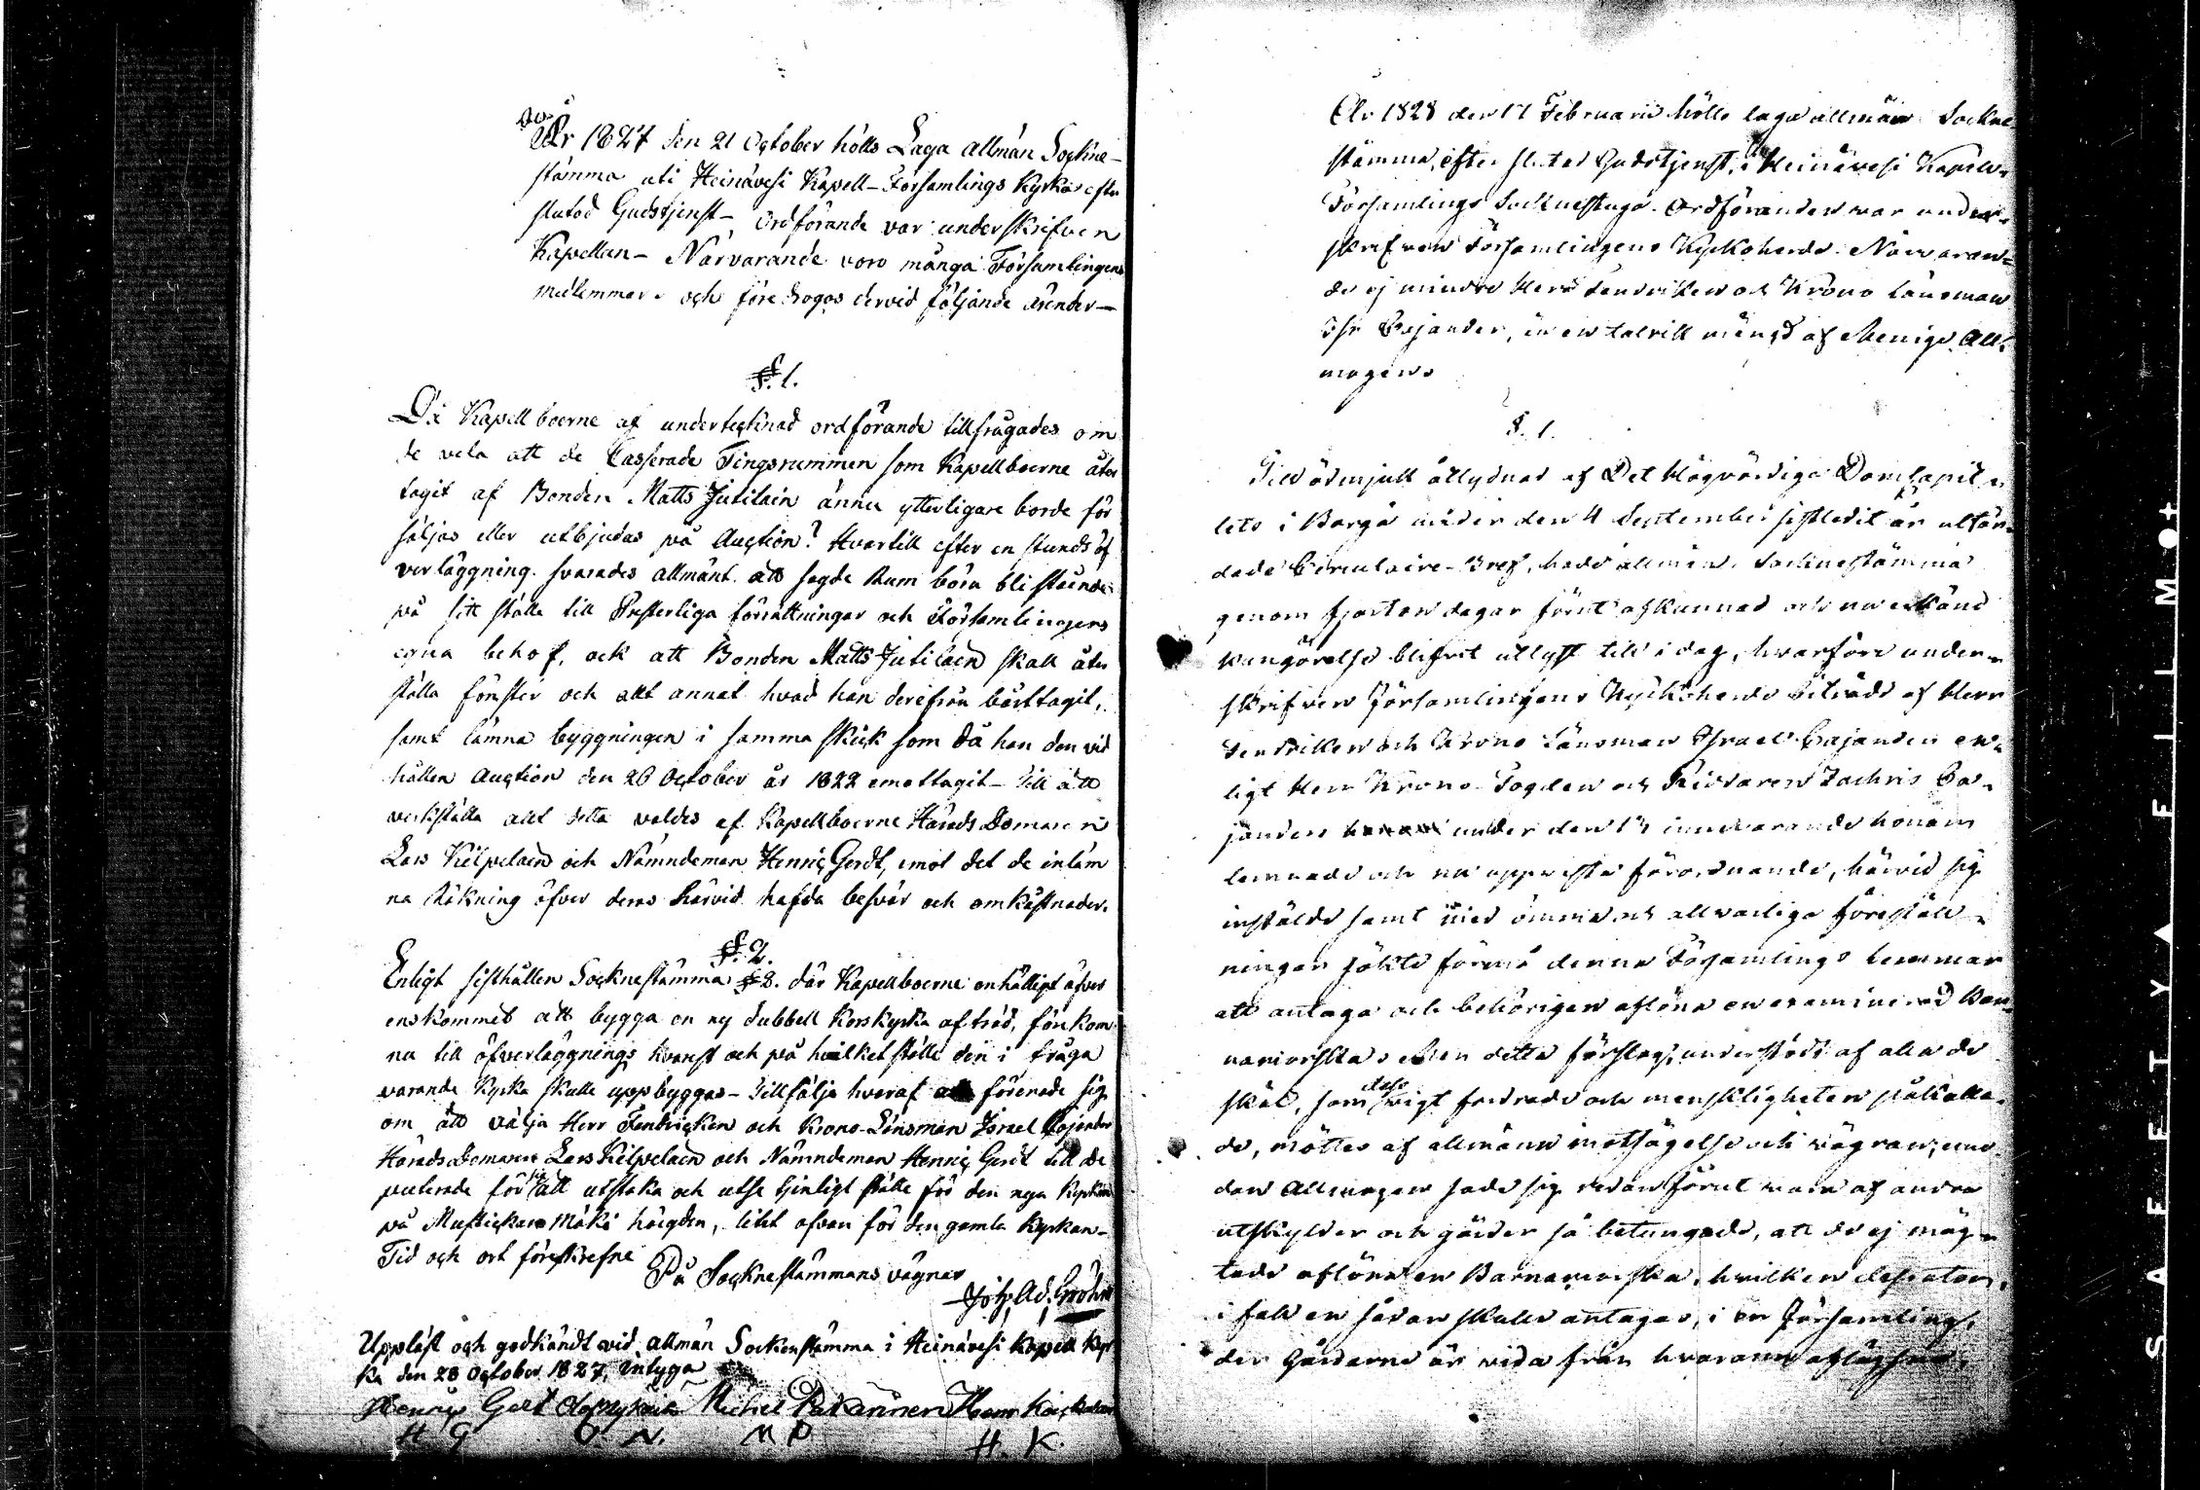 År 1827 den 21 October hölls Laga allmän Sockne-
stämma uti Heinävesi Kapell-Församlings Kyrka efter
slutad Gudstjenst- Ordförande var underskrifven
Kapellan- Närvarande voro många Församlingens
medlemmar och före togos dervid följande ärender-
§. 1.
De Kapellboerne af undertecknad ordförande tillfrågades om
de vela att de Casserade Tingsrummen som Kapellboerne åter
tagit af Bonden Matts Jutilain ännu ytterligare borde för
säljas eller utbjudas på Auction? Hvartill efter en stunds öf
verläggning svarades allmänt att sagde Rum böra bli stående
på sitt ställe till Presterliga förrättningar och Församlingens
egna behof, ock att Bonden Matts Jutilain skall åter
ställa fönster och allt annat hvad han derefrån bårttagit,
samt lämna byggningen i samma skick som då han den vid
hållen Auction den 26 October år 1822 emottagit- Till att
verkställa allt detta valdes af Kapellboerne Härads Domaren
Lars Kilpelain och Nämndeman Henric Gerdt, emot det de inläm
na Räkning öfver deras härvid hafda besvär och omkåstnader.
§. 2.
Enligt sisthållen Socknestämma § 8. där Kapellboerne enhälligt öfver
enskommit att bygga en ny dubbell Korskyrka af träd, förekom
nu till öfverläggnings hvarest och på hvilket ställe den i fråga
varande Kyrka skulle uppbyggas- Tillfölje hvaraf förenade sig
om att välja Herr Fendricken och Krono-Länsman Israel Cajander
Härads Domaren Lars Kilpelain och Nämndeman Henric Gerdt till de
puterade för att utstaka och utse tjenligt ställe för den nya Kyrkan
på Mustickan Mäki högden, litet ofvan för den gamla Kyrkan-
Tid och ort föreskrefne
På Socknestämmans vägnar
Joh. Ad. Gröhn
Uppläst och godkändt vid allmän Sockenstämma i Heinävesi Kapell Kyr
ka den 28 October 1827, intyga
Henric Gert Michel Pakarinen
H G O. N. M P H. K.
År 1828 den 17 Februarii hölls laga allmän Sockne
stämma, efter slutad Gudstjenst, i Heinävesi Kapell-
Församlings Socknestuga. Ordföranden var under-
skrifven Församlingens Kyrkoherde. Närvaran-
de ej mindre Herr Fendricken och Krono Länsman
Isr Cajander, än en talrik mängd af Menige All-
mogen.
§. 1.
Till ödmjuk åtlydnad af Det Högvördiga Domkapit-
lets i Borgå under den 4 September sistledit år utfär-
dade Circulaire-Bref, hade allmän Socknestämma
genom fjorton dagar förut afkunnad och nu erkänd
kungörelse blifvit utlyst till i dag, hvarföre under-
skrifven Församlingens Kyrkoherde biträdd af Herr
Fendriken och Krono Länsman Israel Cajander en-
ligt Herr Krono Fogden och Riddaren Zachris Ca-
janders under den 13 innevarande honom
lemnade och nu uppviste förordnande, härvid sig
instälde samt med ömma och allvarliga föreställ-
ningar sökte förmå denna Församlings lemmar
att antaga och behörigen aflöna en examinerad Barn-
morska. Men detta förslag, understödt af alla de
skäl, som dess vigt fordrade och menskligheten påkalla-
de, möttes af allmänn motsägelse och vägran, eme-
dan Allmogen sade sig redan förut vara af andra
utskylder och gärder så betungade, att de ej mäg-
tade aflöna en Barnmorska, hvilken dessutom,
i fall en sådan skulle antagas, i en Församling,
der Gårdarne är vida från hvarann aflägsna,